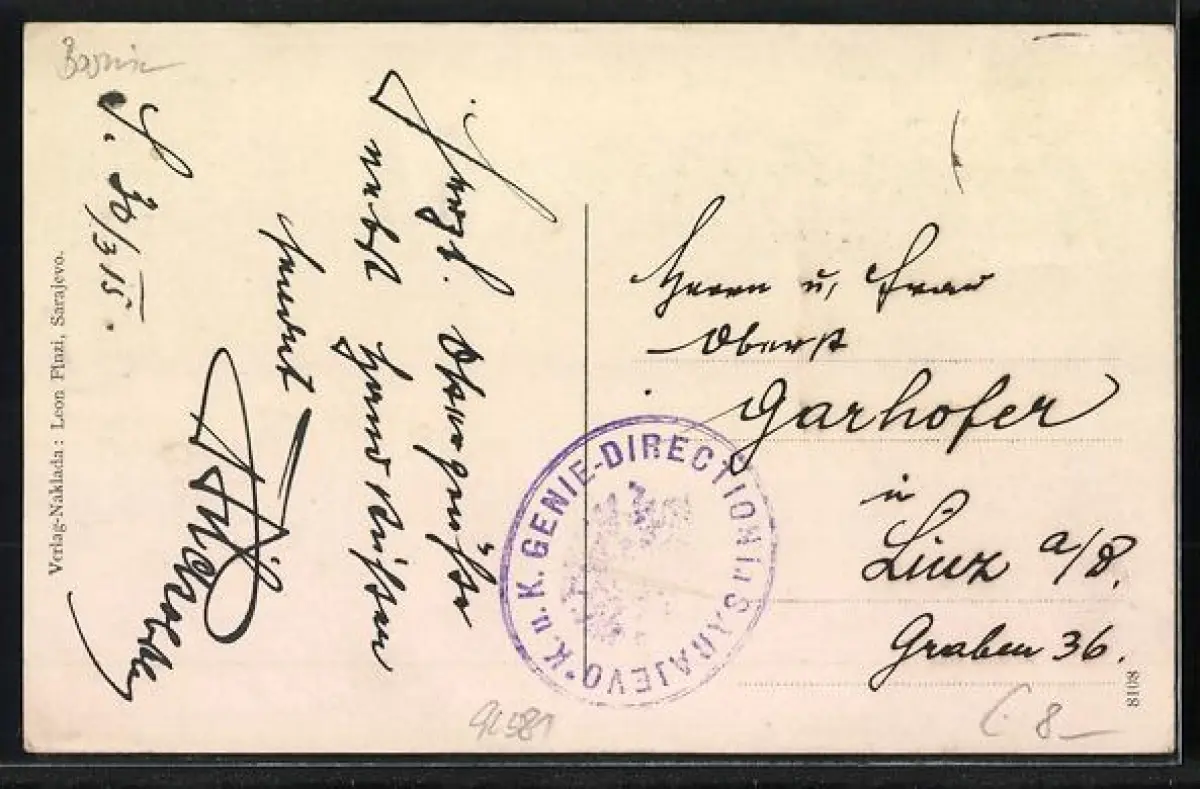 Bosnien
S. 30/3 15.
Herzl. Ostergrüße
nebst Handküssen
sendet
Herrn u. Frau
Oberst
Garhofer
in
Linz a/D.
Graben 36.
K. u. K. GENIE-DIRECTION in SARAJEVO
Verlag-Naklada: Leon Finzi, Sarajevo.
8108
8